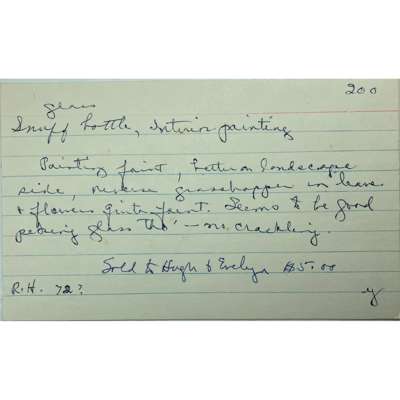 200
glass
Snuff bottle, Interior painting
Painting faint, better on landscape
side, reverse grasshopper in leaves
& flowers quite faint. Seems to be good
peking glass tho' – no crackling.
Sold to Hugh & Evelyn 85.00
R.H. 72?